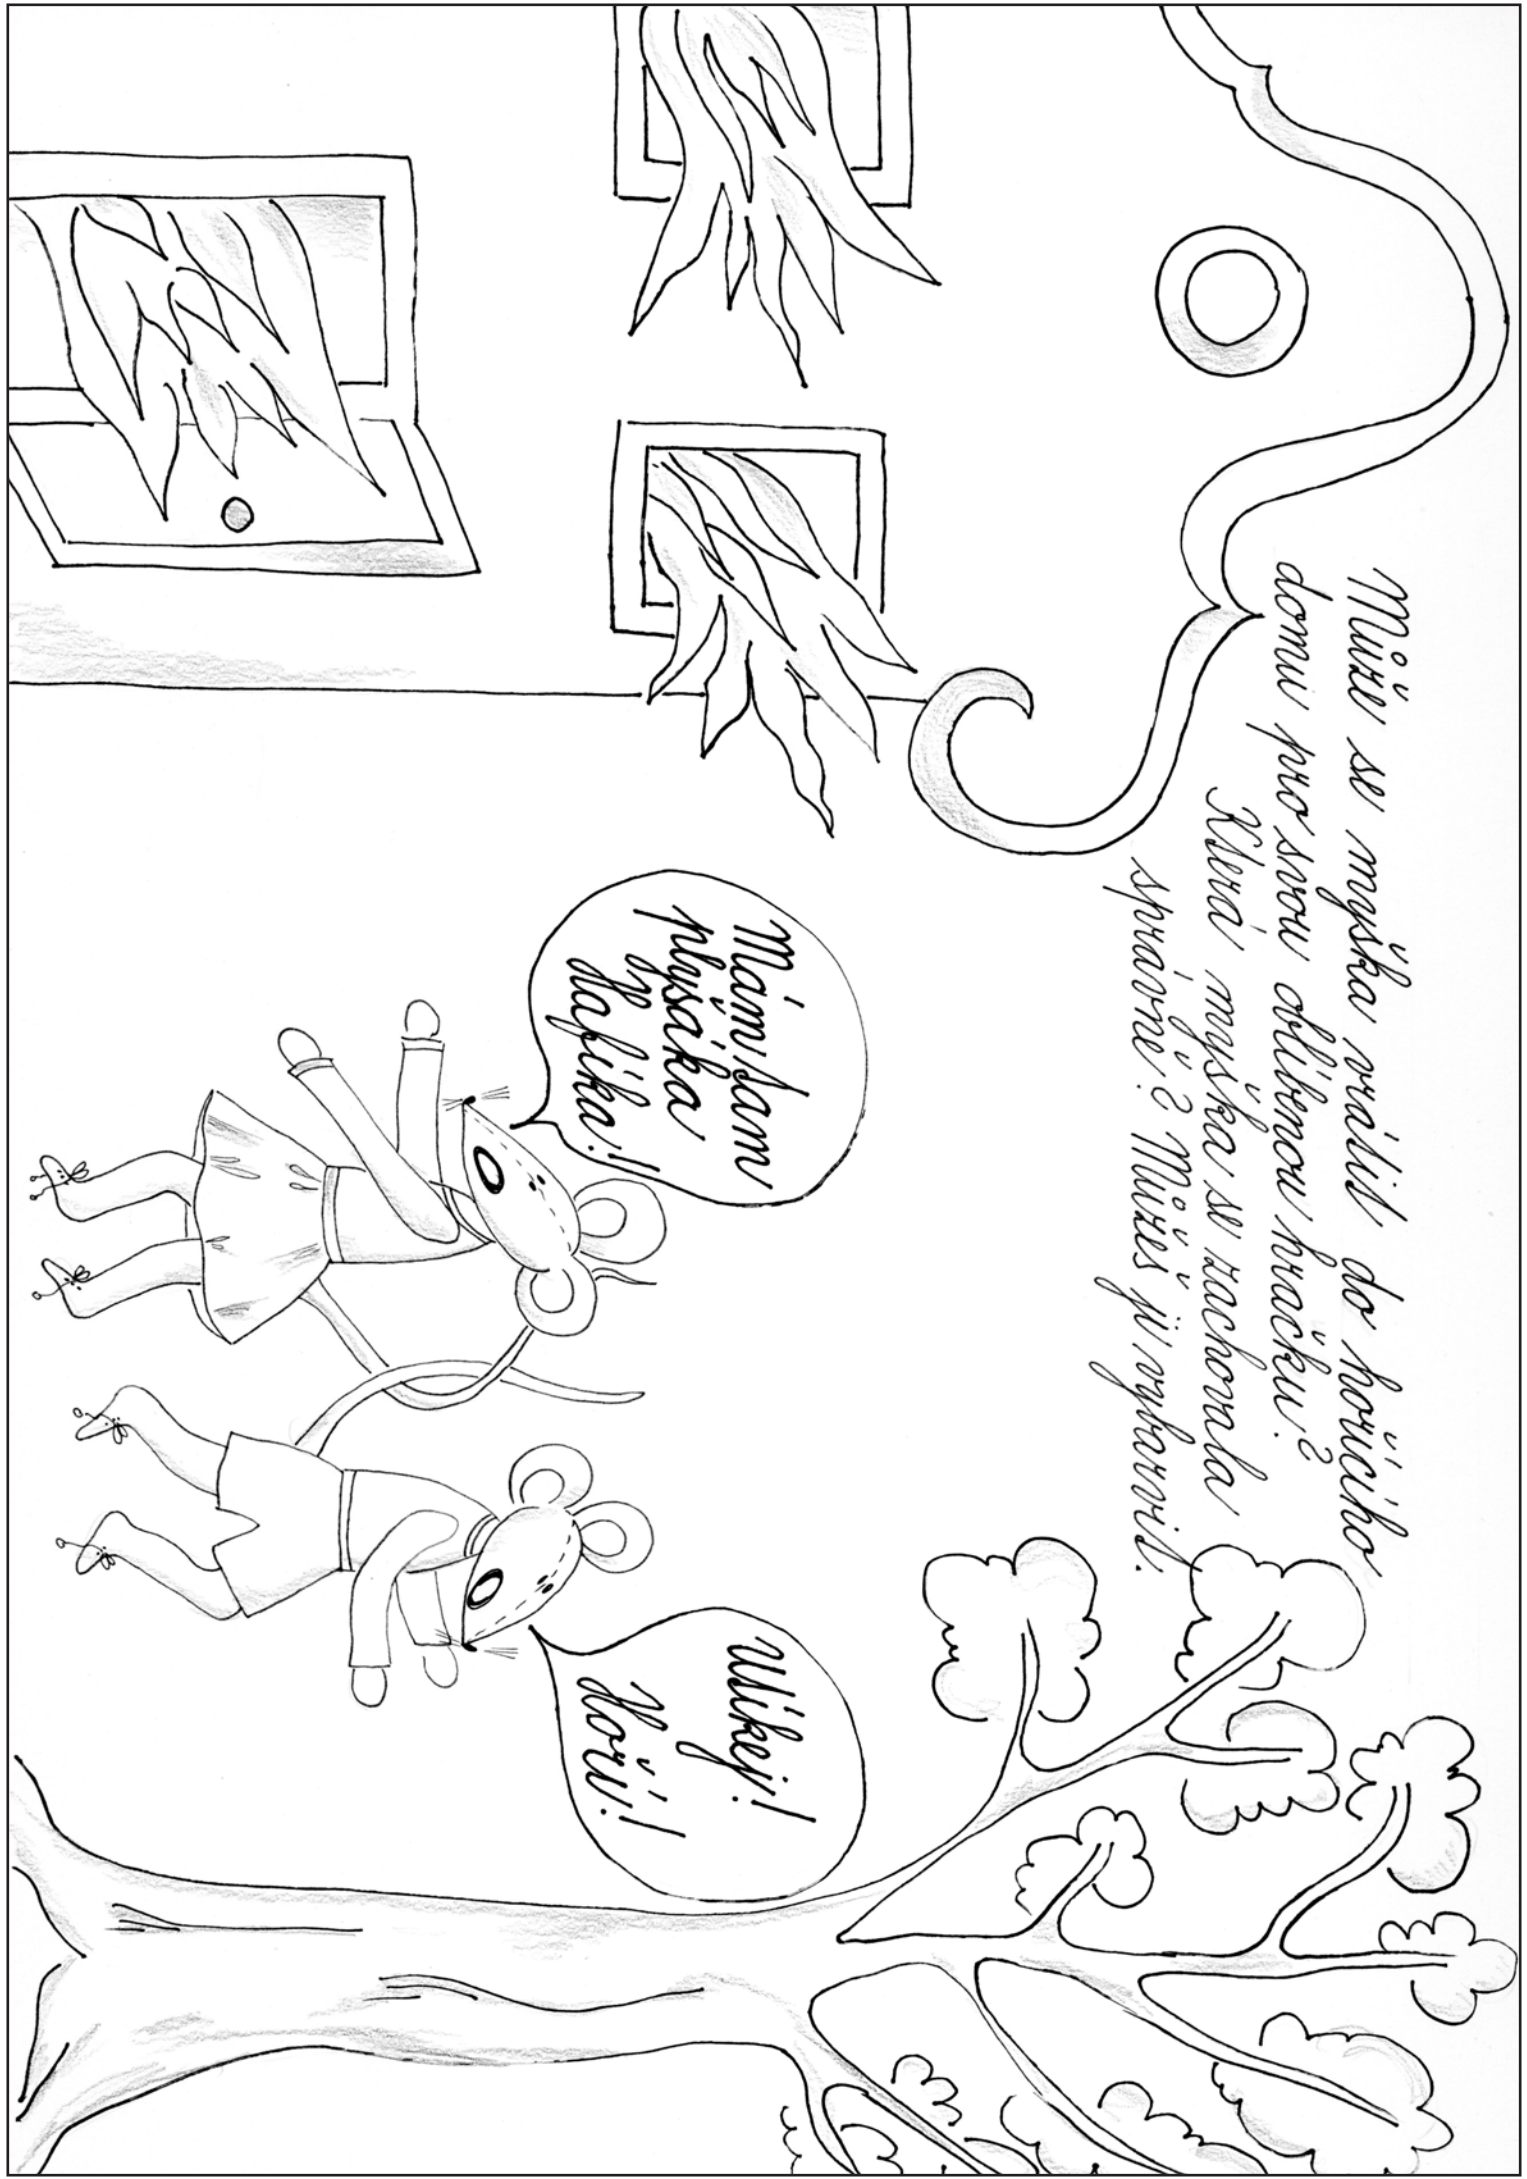 Může se myška vrátit do hořícího
domu pro svou oblíbenou hračku?
Která myška se zachovala
správně? Můžeš ji vybarvit.
Mám tam
plyšáka
Hafíka!!
Utíkej!
Hoří!!